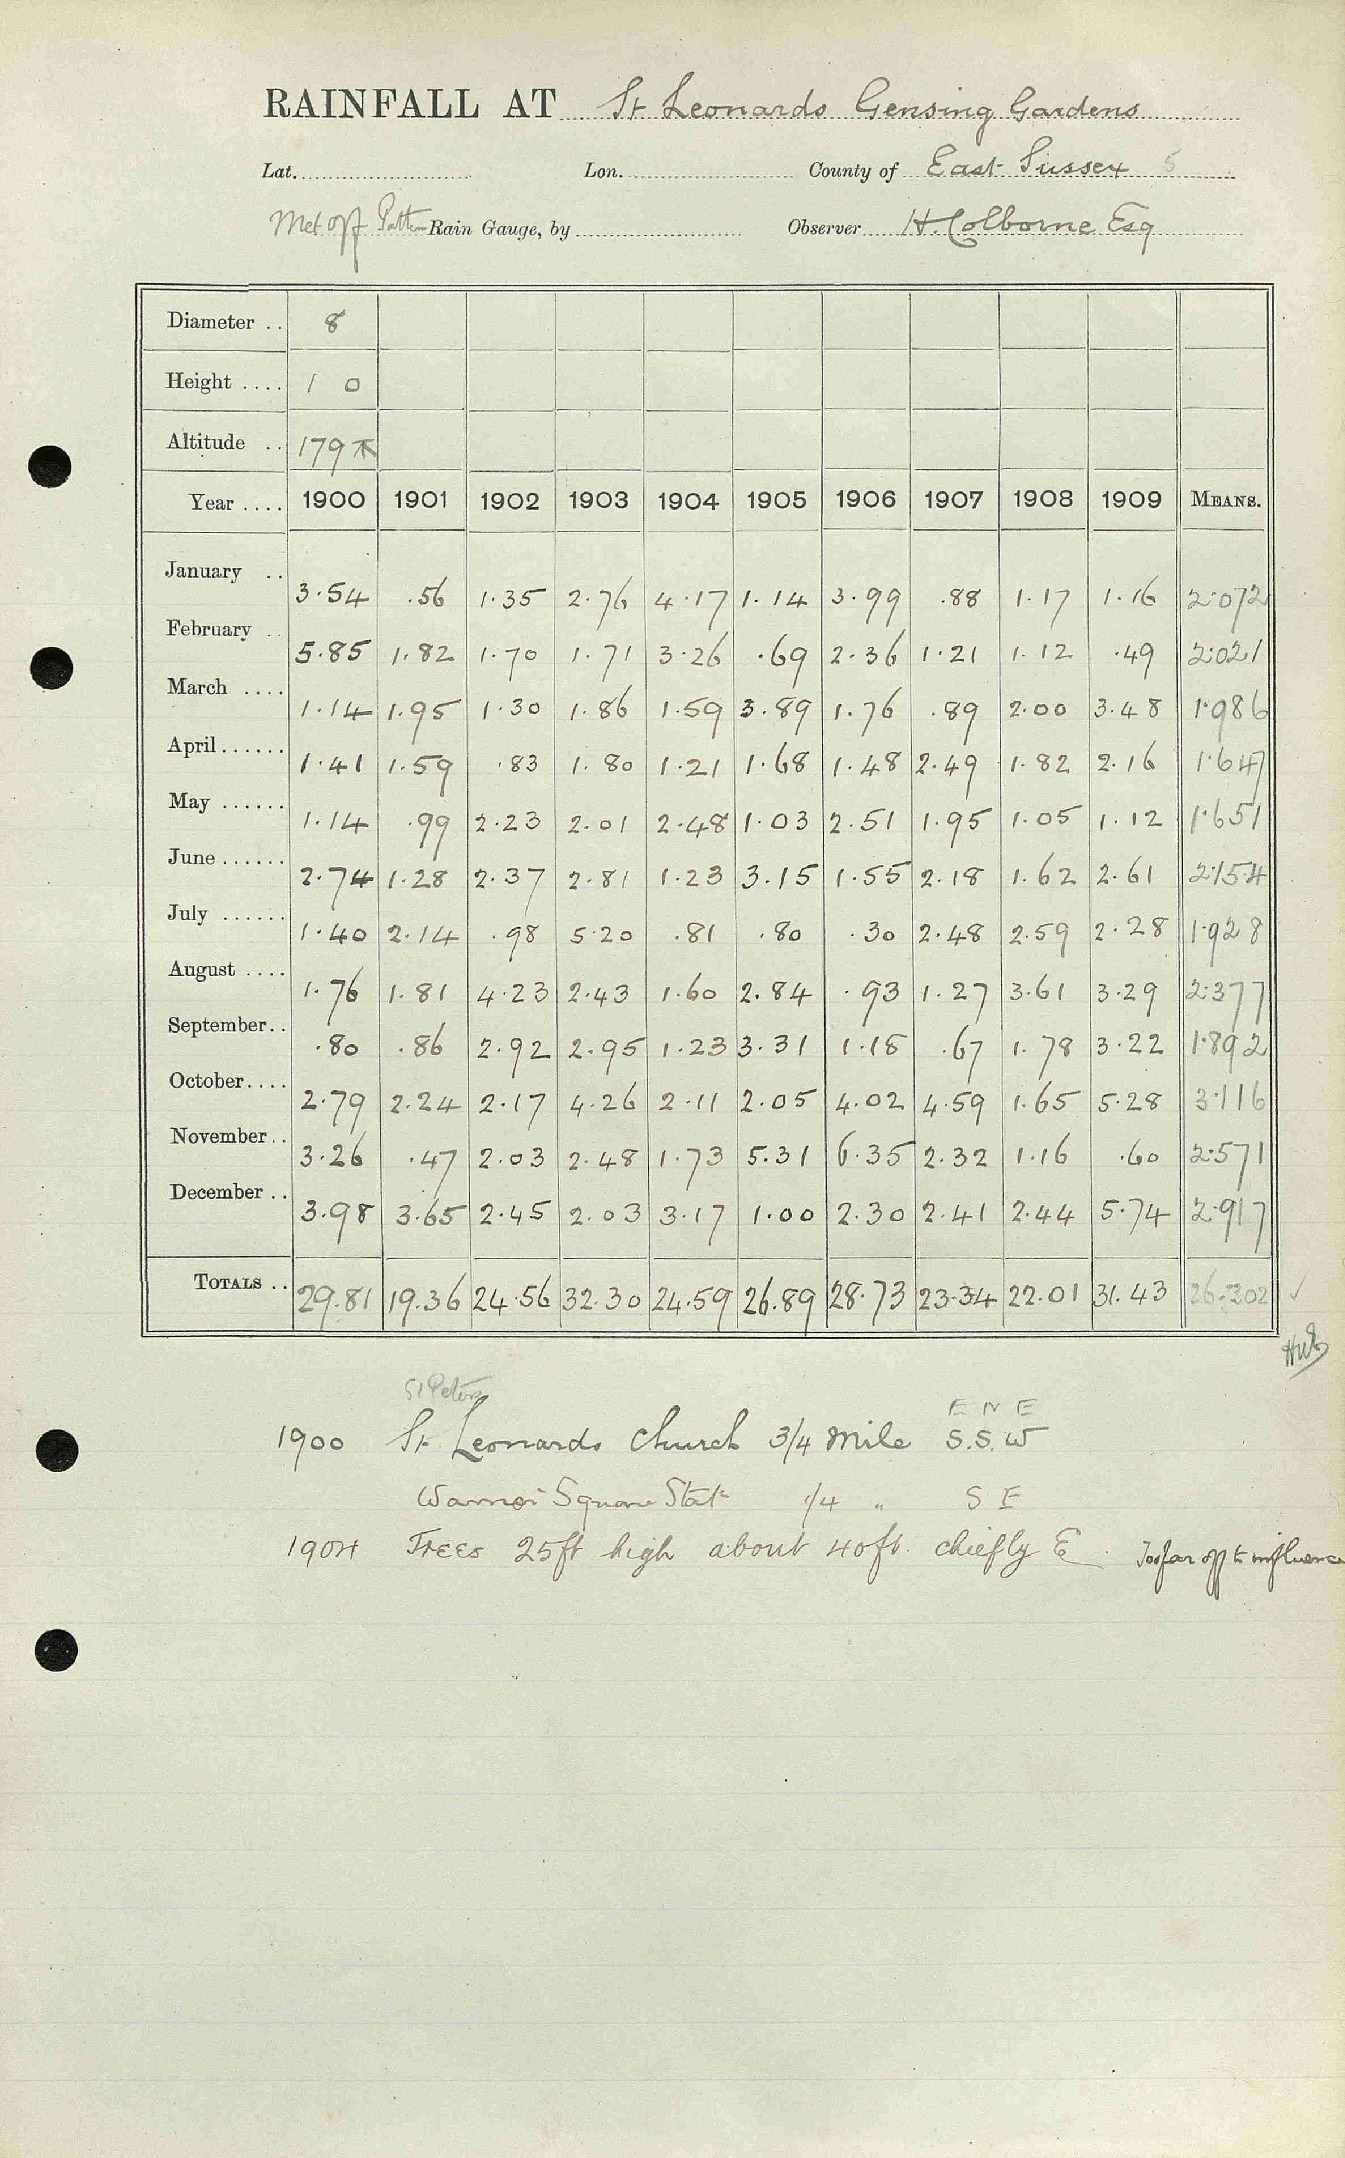 RAINFALL AT St Leonards Gensing Gardens
Lat. Lon. County of East Sussex 5
Met off Pattern Rain Gauge, by Observer H. Colborne Esq
Diameter .. 8
Height .... 1 0
Altitude .. 179
Year .... 1900 1901 1902 1903 1904 1905 1906 1907 1908 1909 MEANS.
January .. 3.54 .56 1.35 2.76 4.17 1.14 3.99 .88 1.17 1.16 2.072
February .. 5.85 1.82 1.70 1.71 3.26 .69 2.36 1.21 1.12 .49 2.021
March .... 1.14 1.95 1.30 1.86 1.59 3.89 1.76 .89 2.00 3.48 1.986
April ...... 1.41 1.59 .83 1.80 1.21 1.68 1.48 2.49 1.82 2.16 1.647
May ...... 1.14 .99 2.23 2.01 2.48 1.03 2.51 1.95 1.05 1.12 1.651
June ...... 2.74 1.28 2.37 2.81 1.23 3.15 1.55 2.18 1.62 2.61 2.154
July ...... 1.40 2.14 .98 5.20 .81 .80 .30 2.48 2.59 2.28 1.928
August .... 1.76 1.81 4.23 2.43 1.60 2.84 .93 1.27 3.61 3.29 2.377
September.. .80 .86 2.92 2.95 1.23 3.31 1.18 .67 1.78 3.22 1.892
October.... 2.79 2.24 2.17 4.26 2.11 2.05 4.02 4.59 1.65 5.28 3.116
November.. 3.26 .47 2.03 2.48 1.73 5.31 6.35 2.32 1.16 .60 2.571
December .. 3.98 3.65 2.45 2.03 3.17 1.00 2.30 2.41 2.44 5.74 2.917
TOTALS .. 29.81 19.36 24.56 32.30 24.59 26.89 28.73 23.34 22.01 31.43 26.302 ✓
St Peters E N E
1900 St Leonards Church 3/4 Mile S.S.W
Warrior Square Statn 1/4 " S E
1904 Trees 25ft high about 40ft. chiefly E. Too far off to influence